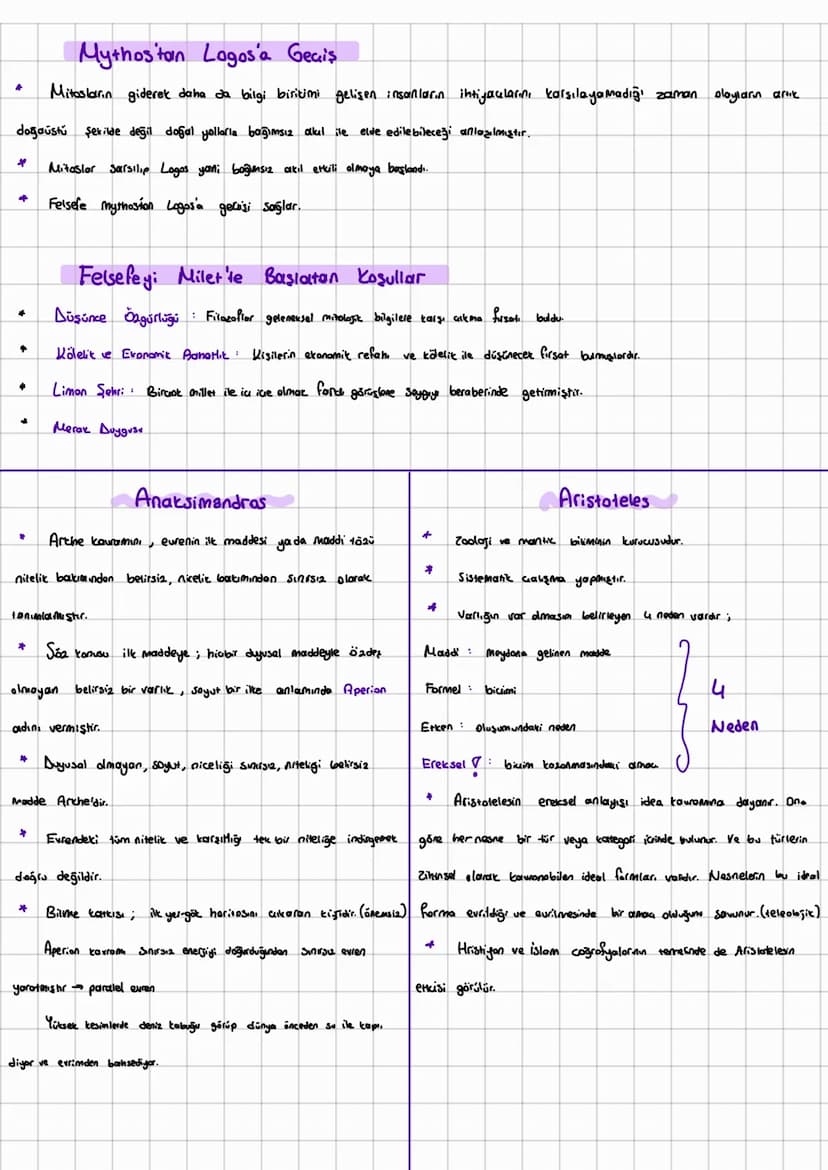 Mythos'tan Logos'a Geçiş
* Mitosların giderek daha da bilgi birikimi gelişen insanların ihtiyaçlarını karşılayamadığı zaman olayların artık
doğaüstü şekilde değil doğal yollarla bağımsız akıl ile elde edilebileceği anlaşılmıştır.
* Mitoslar sarsılıp Logos yani bağımsız akıl etkili olmaya başlandı.
* Felsefe mythostan Logos'a geçişi sağlar.
Felsefeyi Milet'te Başlatan Koşullar
* Düşünce Özgürlüğü : Filozoflar geleneksel mitolojik bilgilere karşı çıkma fırsatı buldu.
* Kölelik ve Ekonomik Rahatlık : Kişilerin ekonomik refahı ve kölelik ile düşünecek fırsat bulmuşlardır.
* Liman Şehri : Birçok millet ile iç içe olmak farklı görüşlere saygıyı beraberinde getirmiştir.
* Merak Duygusu
Anaksimandros
* Arche kavramını, evrenin ilk maddesi ya da maddi tözü
nitelik bakımından belirsiz, nicelik bakımından sınırsız olarak
tanımlamıştır.
* Söz konusu ilk maddeye ; hiçbir duyusal maddeyle özdeş
olmayan belirsiz bir varlık, soyut bir ilke anlamında Aperion
adını vermiştir.
* Duyusal olmayan, soyut, niceliği sınırsız, niteliği belirsiz
madde Arche'dir.
* Evrendeki tüm nitelik ve karşıtlığı tek bir niteliğe indirgemek
doğru değildir.
* Bilime katkısı ; ilk yer-gök haritasını çıkaran kişidir. (önemsiz)
Aperion kavramı sınırsız enerjiyi doğurduğundan sınırsız evren
yaratmıştır → paralel evren
Yüksek kesimlerde deniz kabuğu görüp dünya önceden su ile kaplı
diyor ve evrimden bahsediyor.
Aristoteles
* Zooloji ve mantık biliminin kurucusudur.
* Sistematik çalışma yapmıştır.
* Varlığın var olmasını belirleyen 4 neden vardır ;
Maddi : meydana gelinen madde
Formel : biçimi
Etken : oluşumundaki neden
Ereksel : biçim kazanmasındaki amacı
4
Neden
* Aristotelesin ereksel anlayışı idea kavramına dayanır. Ona
göre her nesne bir tür veya kategori içinde bulunur. Ve bu türlerin
zihinsel olarak kavranabilen ideal formları vardır. Nesnelerin bu ideal
forma evrildiği ve evrilmesinde bir amaç olduğunu savunur. (teleolojik)
* Hristiyan ve İslam coğrafyalarının temelinde de Aristotelesin
etkisi görülür.